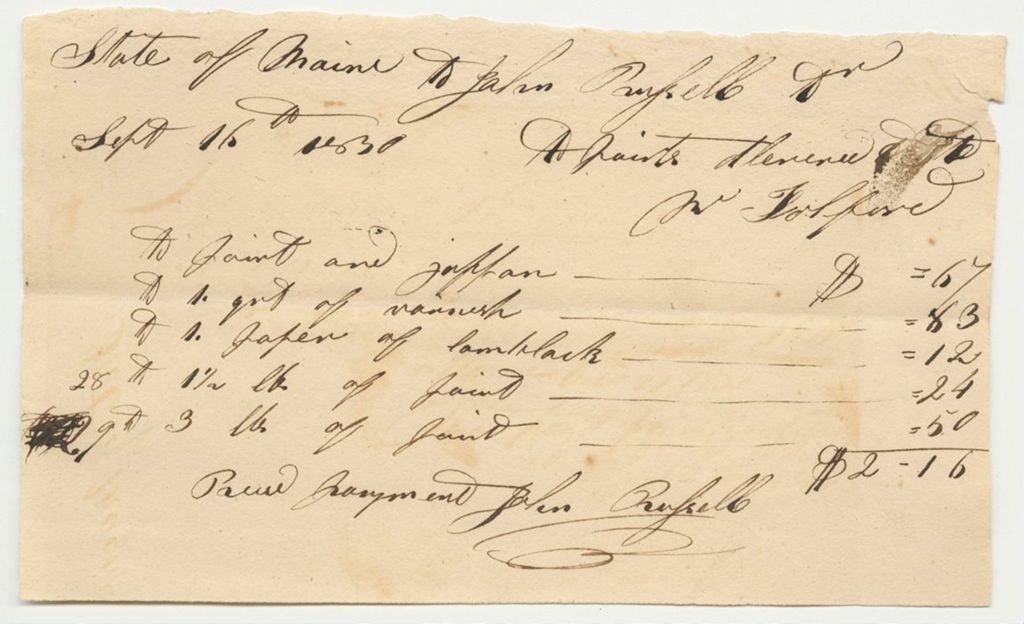 State of Maine To John Russell Dr
Sept 16th 1830 To paints delivered to
Mr Fulford
To paint and jappan $ =67
To 1. qrt of varnish =83
To 1. paper of lamblack =12
28 To 1½ lbs of paint =24
To 3 lbs of paint =50
$2-16
Recd payment John Russell